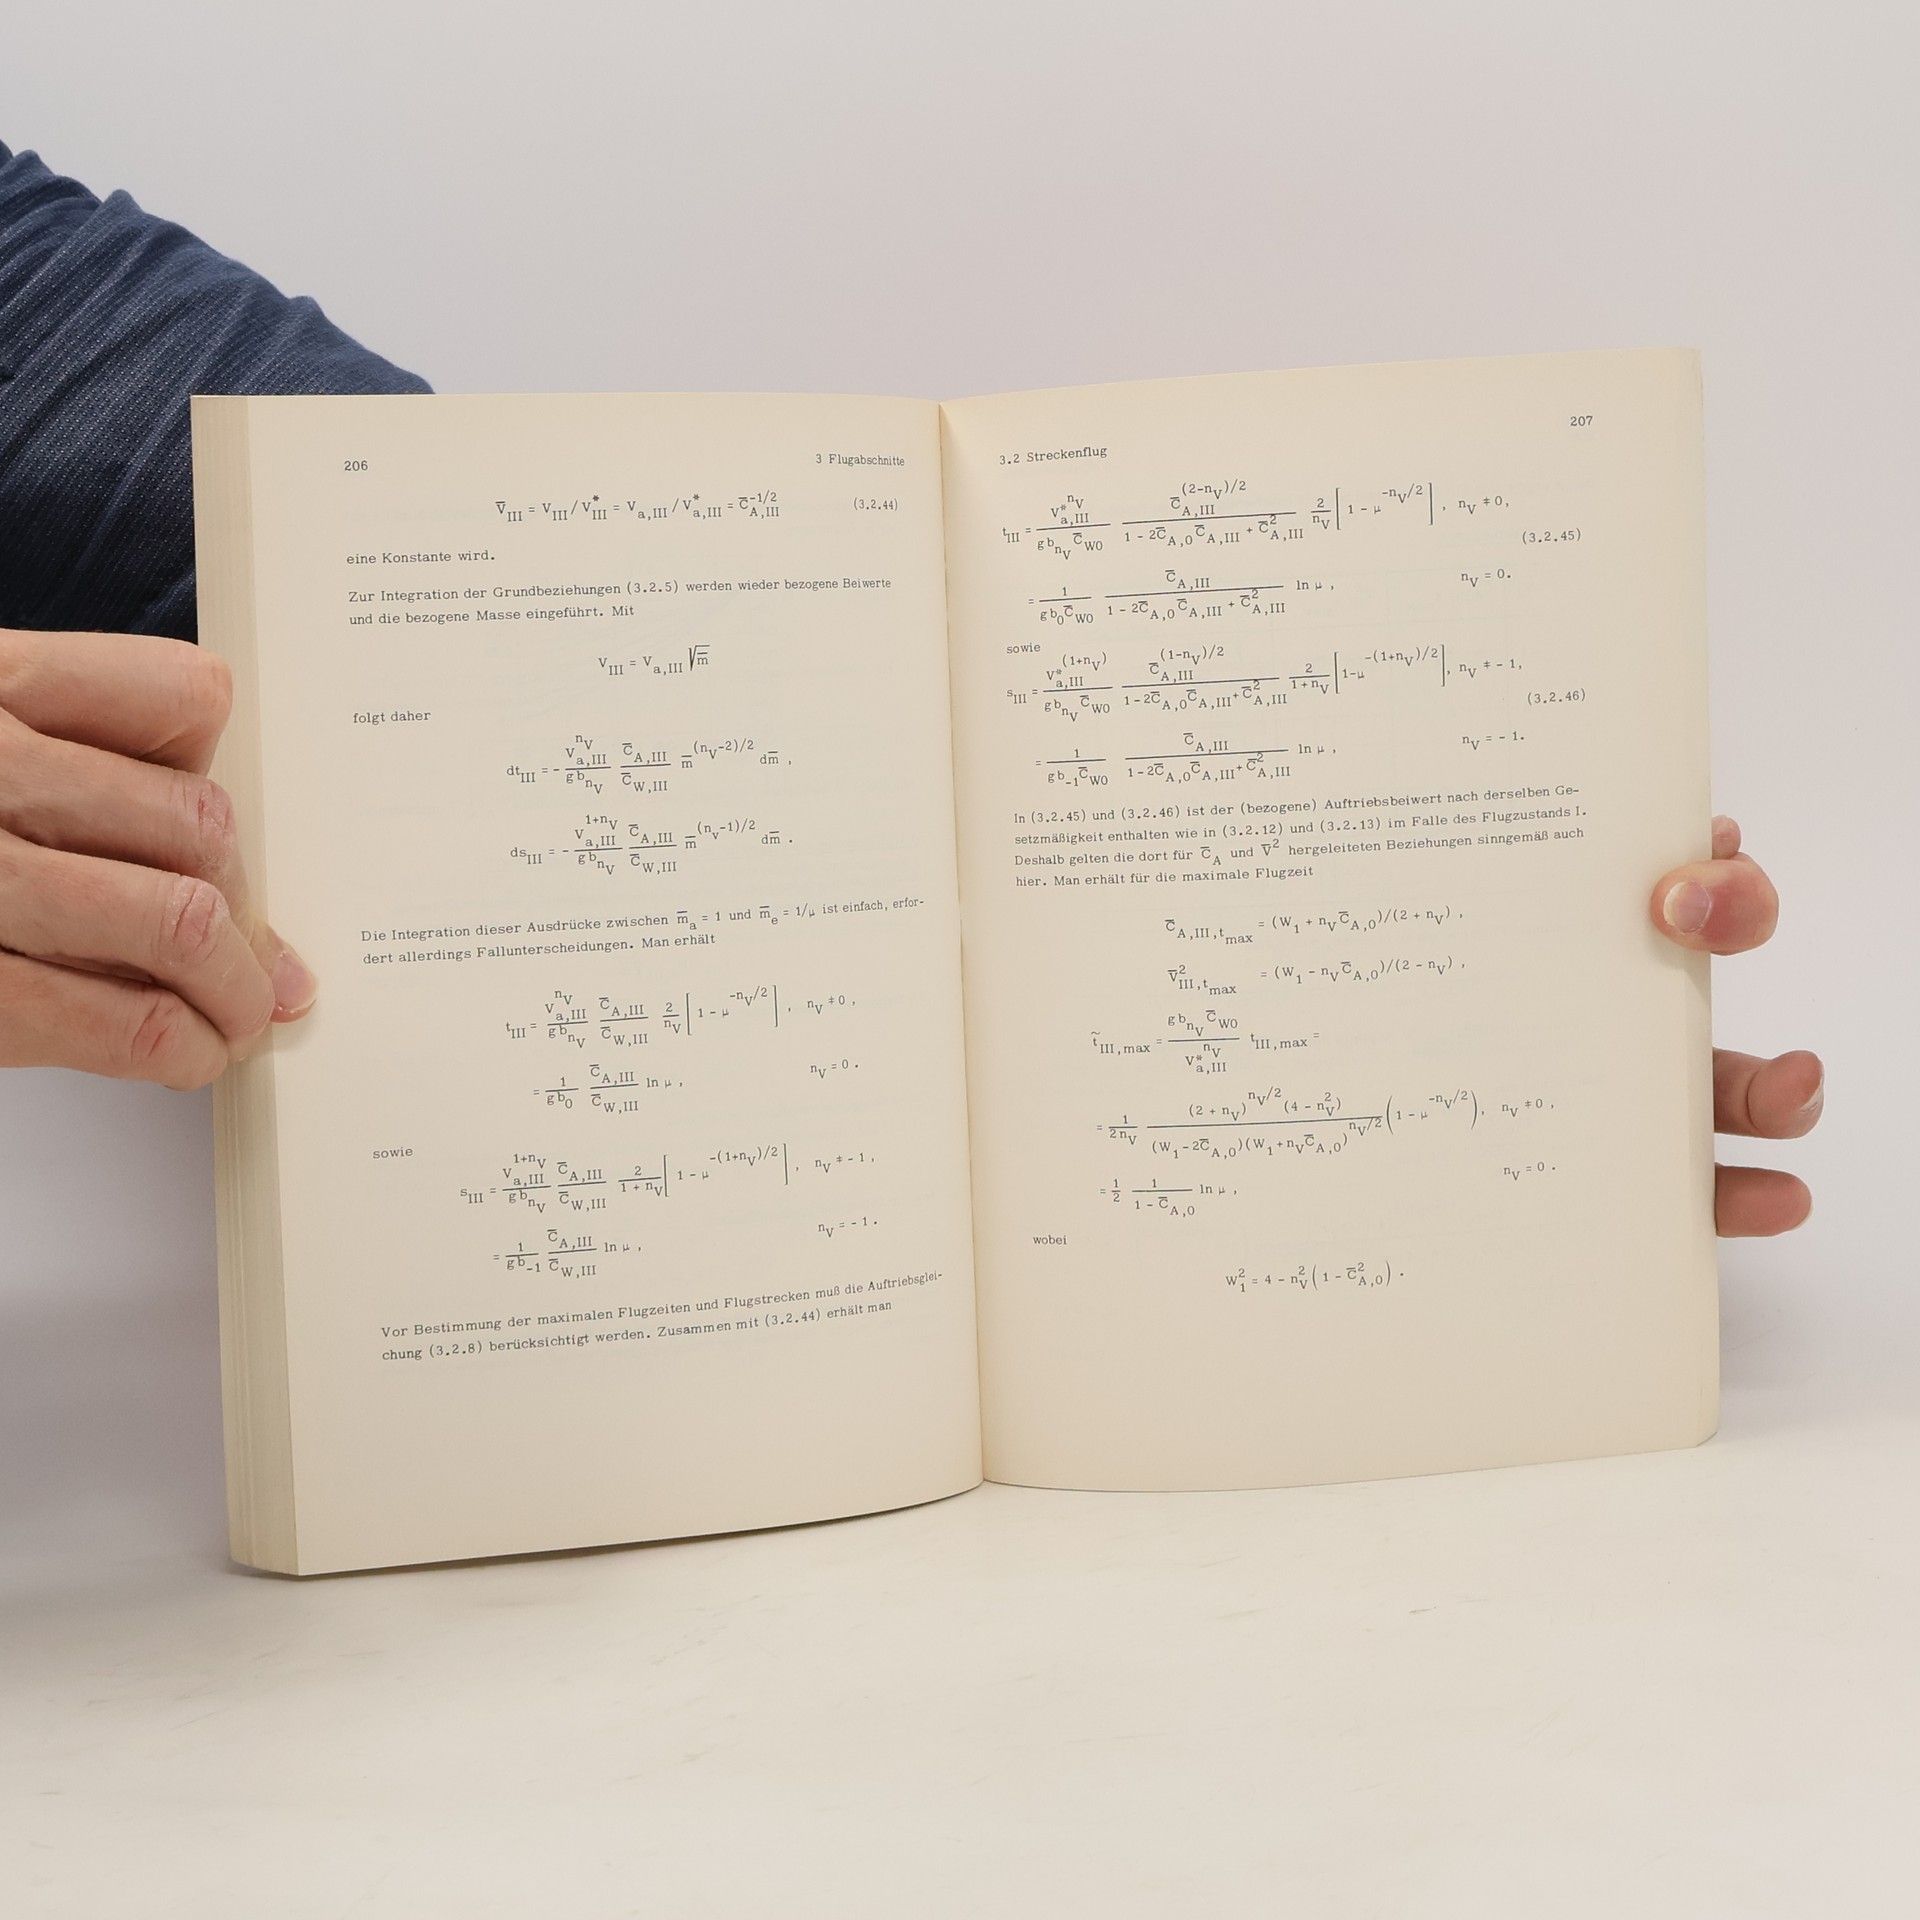 206 3 Flugabschnitte
V̄_III = V_III / V*_III = V_a,III / V*_a,III = C̄_A,III^(-1/2) (3.2.44)
eine Konstante wird.
Zur Integration der Grundbeziehungen (3.2.5) werden wieder bezogene Beiwerte
und die bezogene Masse eingeführt. Mit
V_III = V_a,III √m̄
folgt daher
dt_III = - (V_a,III^(n_V) / (g b_(n_V))) (C̄_A,III / C̄_W,III) m̄^((n_V-2)/2) dm̄ ,
ds_III = - (V_a,III^(1+n_V) / (g b_(n_V))) (C̄_A,III / C̄_W,III) m̄^((n_V-1)/2) dm̄ .
Die Integration dieser Ausdrücke zwischen m̄_a = 1 und m̄_e = 1/μ ist einfach, erfor-
dert allerdings Fallunterscheidungen. Man erhält
t_III = (V_a,III^(n_V) / (g b_(n_V))) (C̄_A,III / C̄_W,III) (2/n_V) [1 - μ^(-n_V/2)] , n_V ≠ 0 ,
= (1 / (g b_0)) (C̄_A,III / C̄_W,III) ln μ , n_V = 0 .
sowie
s_III = (V_a,III^(1+n_V) / (g b_(n_V))) (C̄_A,III / C̄_W,III) (2/(1 + n_V)) [1 - μ^(-(1+n_V)/2)] , n_V ≠ - 1 ,
= (1 / (g b_-1)) (C̄_A,III / C̄_W,III) ln μ , n_V = - 1 .
Vor Bestimmung der maximalen Flugzeiten und Flugstrecken muß die Auftriebsglei-
chung (3.2.8) berücksichtigt werden. Zusammen mit (3.2.44) erhält man
3.2 Streckenflug 207
t_III = (V*_a,III^(n_V) / (g b_(n_V) C̄_W0)) (C̄_A,III^((2-n_V)/2) / (1 - 2C̄_A,0 C̄_A,III + C̄²_A,III)) (2/n_V) [1 - μ^(-n_V/2)] , n_V ≠ 0,
(3.2.45)
= (1 / (g b_0 C̄_W0)) (C̄_A,III / (1 - 2C̄_A,0 C̄_A,III + C̄²_A,III)) ln μ , n_V = 0.
sowie
s_III = (V*_a,III^(1+n_V) / (g b_(n_V) C̄_W0)) (C̄_A,III^((1-n_V)/2) / (1-2C̄_A,0 C̄_A,III + C̄²_A,III)) (2/(1+n_V)) [1-μ^(-(1+n_V)/2)], n_V ≠ - 1,
(3.2.46)
= (1 / (g b_-1 C̄_W0)) (C̄_A,III / (1-2C̄_A,0 C̄_A,III + C̄²_A,III)) ln μ , n_V = - 1.
In (3.2.45) und (3.2.46) ist der (bezogene) Auftriebsbeiwert nach derselben Ge-
setzmäßigkeit enthalten wie in (3.2.12) und (3.2.13) im Falle des Flugzustands I.
Deshalb gelten die dort für C̄_A und V̄² hergeleiteten Beziehungen sinngemäß auch
hier. Man erhält für die maximale Flugzeit
C̄_A,III,t_max = (W_1 + n_V C̄_A,0)/(2 + n_V) ,
V̄²_III,t_max = (W_1 - n_V C̄_A,0)/(2 - n_V) ,
t̃_III,max = (g b_(n_V) C̄_W0 / V*_a,III^(n_V)) t_III,max =
= (1/(2 n_V)) ((2 + n_V)^(n_V/2) (4 - n_V²) / ((W_1 - 2C̄_A,0)(W_1 + n_V C̄_A,0)^(n_V/2))) (1 - μ^(-n_V/2)), n_V ≠ 0 ,
= (1/2) (1 / (1 - C̄_A,0)) ln μ , n_V = 0 .
wobei
W_1² = 4 - n_V² (1 - C̄²_A,0) .